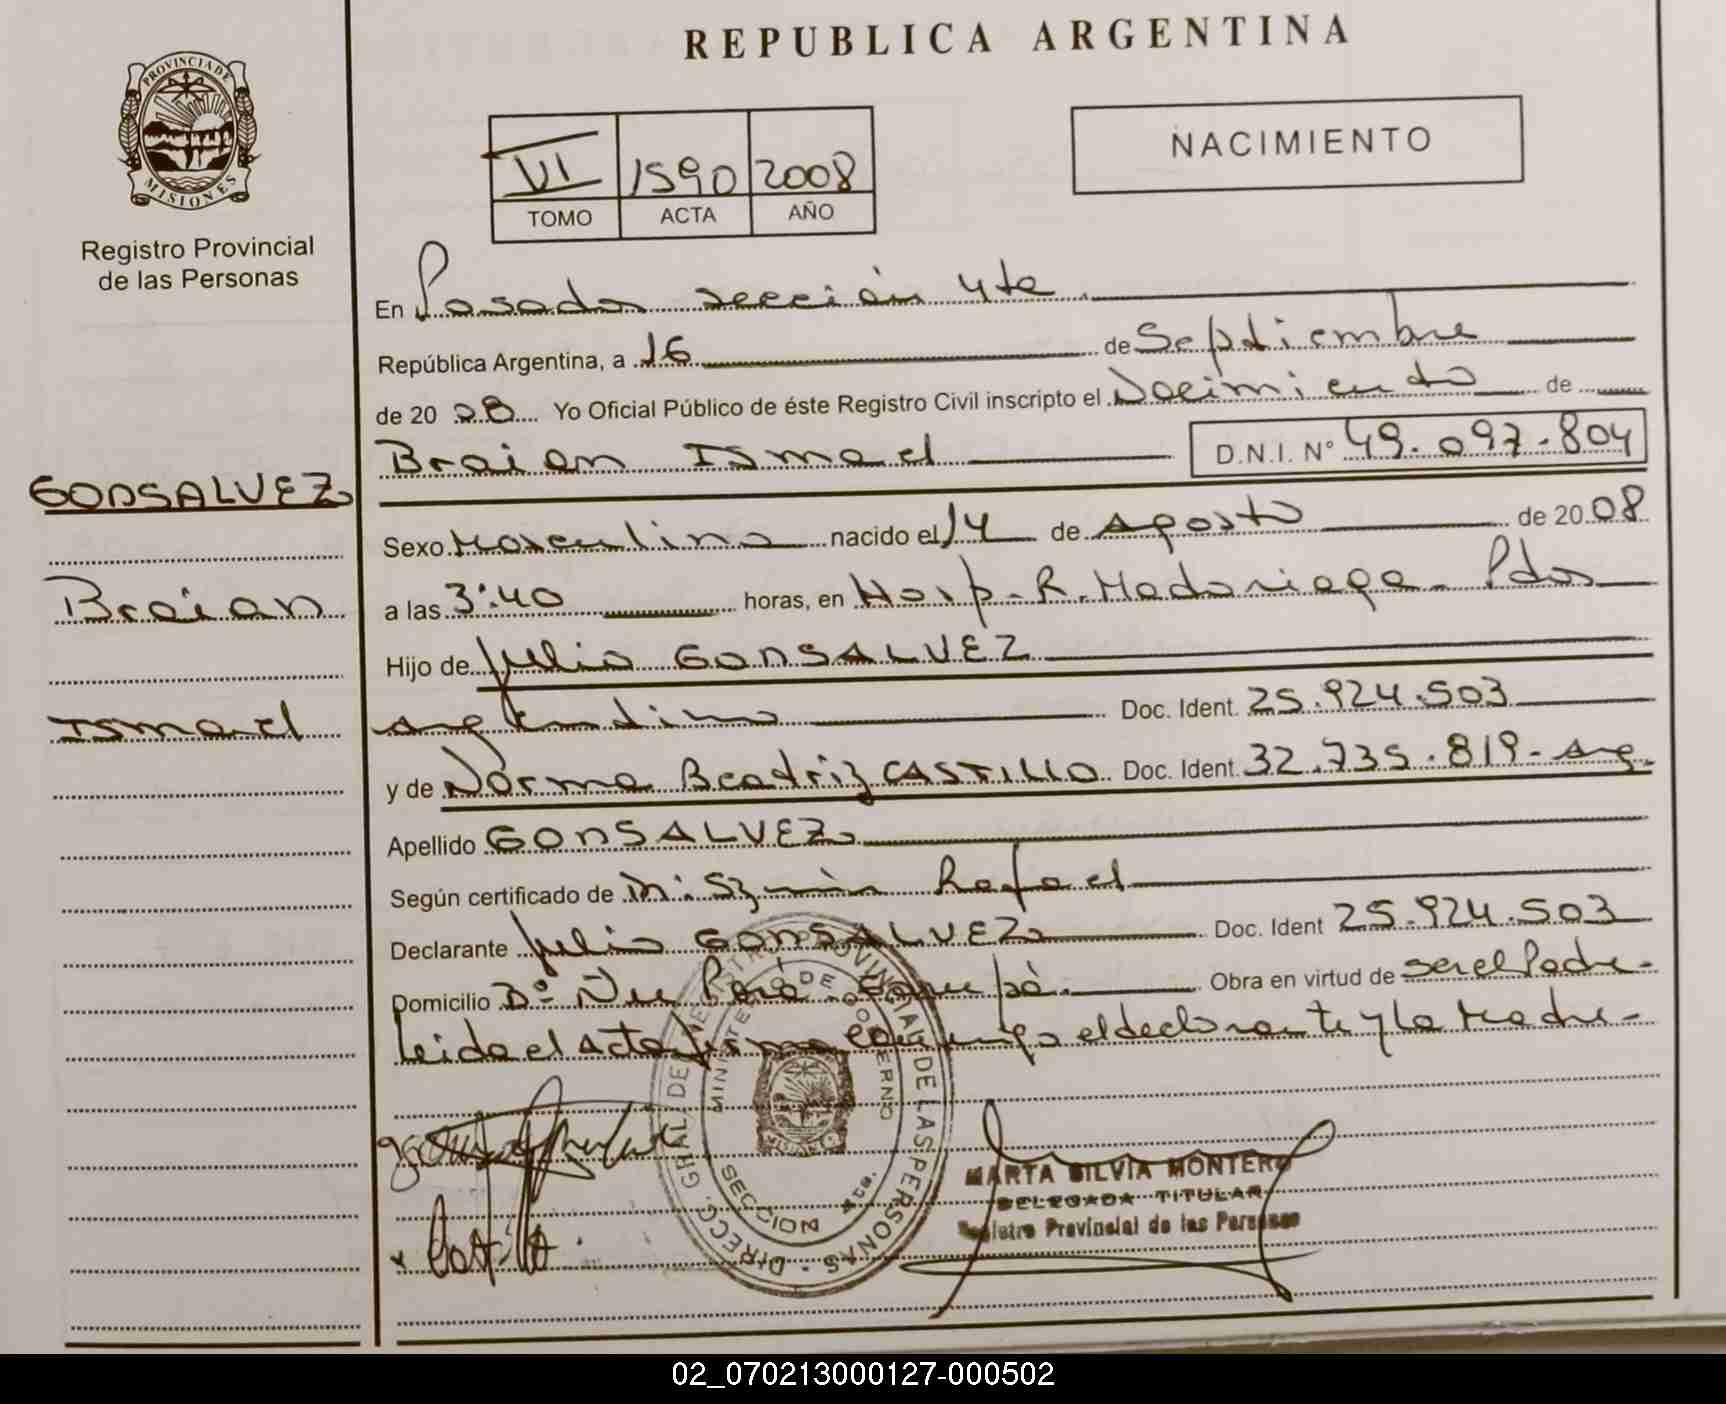 REPUBLICA ARGENTINA
PROVINCIA DE
MISIONES
Registro Provincial
de las Personas
VI 1590 2008
TOMO ACTA AÑO
NACIMIENTO
En Posadas sección 4ta
República Argentina, a 16 de Septiembre
de 2008 Yo Oficial Público de éste Registro Civil inscripto el Nacimiento de
Braian Ismael D.N.I. Nº 49.097.804
GONSALVEZ
Braian
Ismael
Sexo Masculino nacido el 14 de Agosto de 2008
a las 3:40 horas, en Hosp. R. Madariaga - Pdas
Hijo de Julio GONSALVEZ
Argentino Doc. Ident. 25.924.503
y de Norma Beatriz CASTILLO Doc. Ident. 32.735.819 - Arg.
Apellido GONSALVEZ
Según certificado de Rafael
Declarante Julio GONSALVEZ Doc. Ident 25.924.503
Domicilio Bº Ñu Porá - Garupá. Obra en virtud de ser el Padre -
Leida el Acta firma conmigo el declarante y la Madre -
DIRECC. GRAL. DEL REGISTRO PROVINCIAL DE LAS PERSONAS
MINISTERIO DE GOBIERNO
SECCION 4ta.
MARTA SILVIA MONTERO
DELEGADA TITULAR
Registro Provincial de las Personas
02_070213000127-000502